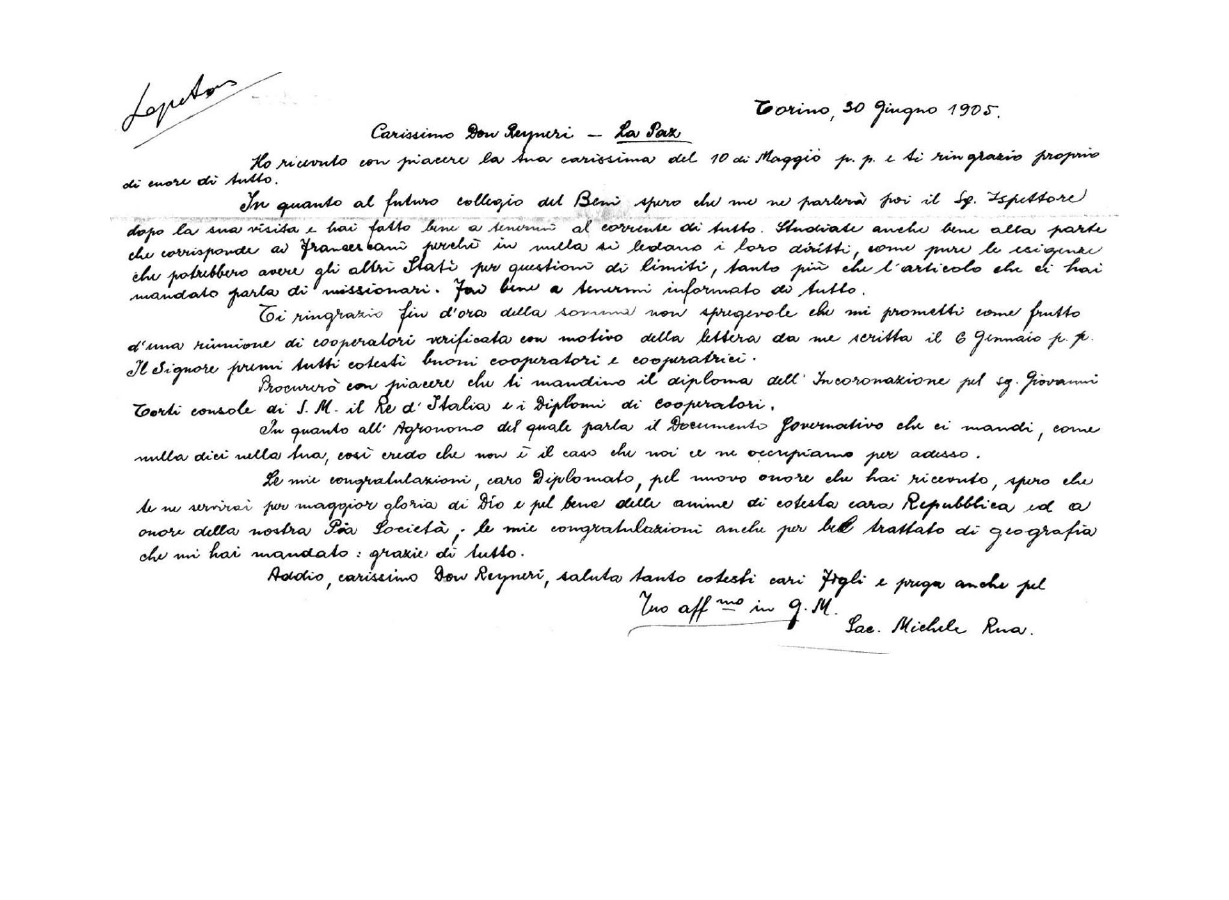 Torino, 30 Giugno 1905.
Carissimo Don Reyneri – La Paz
Ho ricevuto con piacere la tua carissima del 10 di Maggio p. p. e ti ringrazio proprio
di cuore di tutto.
In quanto al futuro collegio del Beni spero che me ne parlerà poi il Sg. Ispettore
dopo la sua visita e hai fatto bene a tenermi al corrente di tutto. Studiate anche bene alla parte
che corrisponde ai Francescani perchè in nulla si ledano i loro diritti, come pure le esigenze
che potrebbero avere gli altri Stati per questioni di limiti, tanto più che l'articolo che ci hai
mandato parla di missionari. Fai bene a tenermi informato di tutto.
Ti ringrazio fin d'ora della somma non spregevole che mi prometti come frutto
d'una riunione di cooperatori verificata con motivo della lettera da me scritta il 6 Gennaio p. p.
Il Signore premi tutti cotesti buoni cooperatori e cooperatrici.
Procurerò con piacere che ti mandino il diploma dell' Incoronazione pel sg. Giovanni
Torti console di S. M. il Re d' Italia e i Diplomi di cooperatori.
In quanto all' Agronomo del quale parla il Documento Governativo che ci mandi, come
nulla dici nella tua, così credo che non è il caso che noi ce ne occupiamo per adesso.
Le mie congratulazioni, caro Diplomato, pel nuovo onore che hai ricevuto, spero che
te ne servirai per maggior gloria di Dio e pel bene delle anime di cotesta cara Repubblica ed a
onore della nostra Pia Società; le mie congratulazioni anche per bel trattato di geografia
che mi hai mandato: grazie di tutto.
Addio, carissimo Don Reyneri, saluta tanto cotesti cari Figli e prega anche pel
Tuo aff mo in G. M.
Sac. Michele Rua.